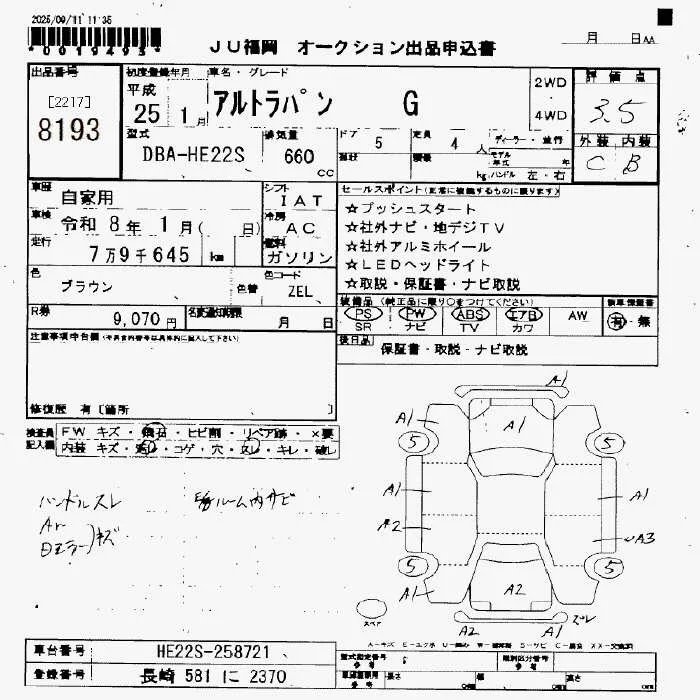 2025/09/11 11:35
00019495
JU福岡 オークション出品申込書
月 日AA
出品番号
[2217]
8193
初度登録年月
平成
25 1月
車名・グレード
アルトラパン G
2WD
4WD
評価点
3.5
型式
DBA-HE22S
排気量
660
cc
ドア
5
定員
4人
ディーラー・並行
形状
積載
kg
モデル年式
年
ハンドル 左・右
外装 内装
C B
車歴
自家用
車検
令和 8年 1月( 日)
走行
7万9千645 km
シフト
IAT
冷房
AC
燃料
ガソリン
セールスポイント(正常に機能するものに限ります)
☆プッシュスタート
☆社外ナビ・地デジTV
☆社外アルミホイール
☆LEDヘッドライト
☆取説・保証書・ナビ取説
色
ブラウン
色替
色コード
ZEL
装備品(純正品に限り○をつけてください)
新車保証書
PS PW ABS エアB AW
SR ナビ TV カワ
有・無
R券
9,070円
名変通知期限
月 日
後日品
保証書・取説・ナビ取説
注意事項申告欄
修復歴 有〔箇所 〕
検査員記入欄
FW キズ・飛石・ヒビ割・リペア跡・×要
内装 キズ・汚レ・コゲ・穴・スレ・キレ・破レ
ハンドルスレ
ルーム内サビ
キズ
A1
A1
A1
5
5
A1
A1
A2
A3
5
5
A1
A2
スペア
A2
A1
A-キズ E-エクボ
車台番号
HE22S-258721
登録番号
長崎 581 に 2370
型式指定番号
類別区分番号
参考
参考
長さ
cm
幅
cm
高さ
cm